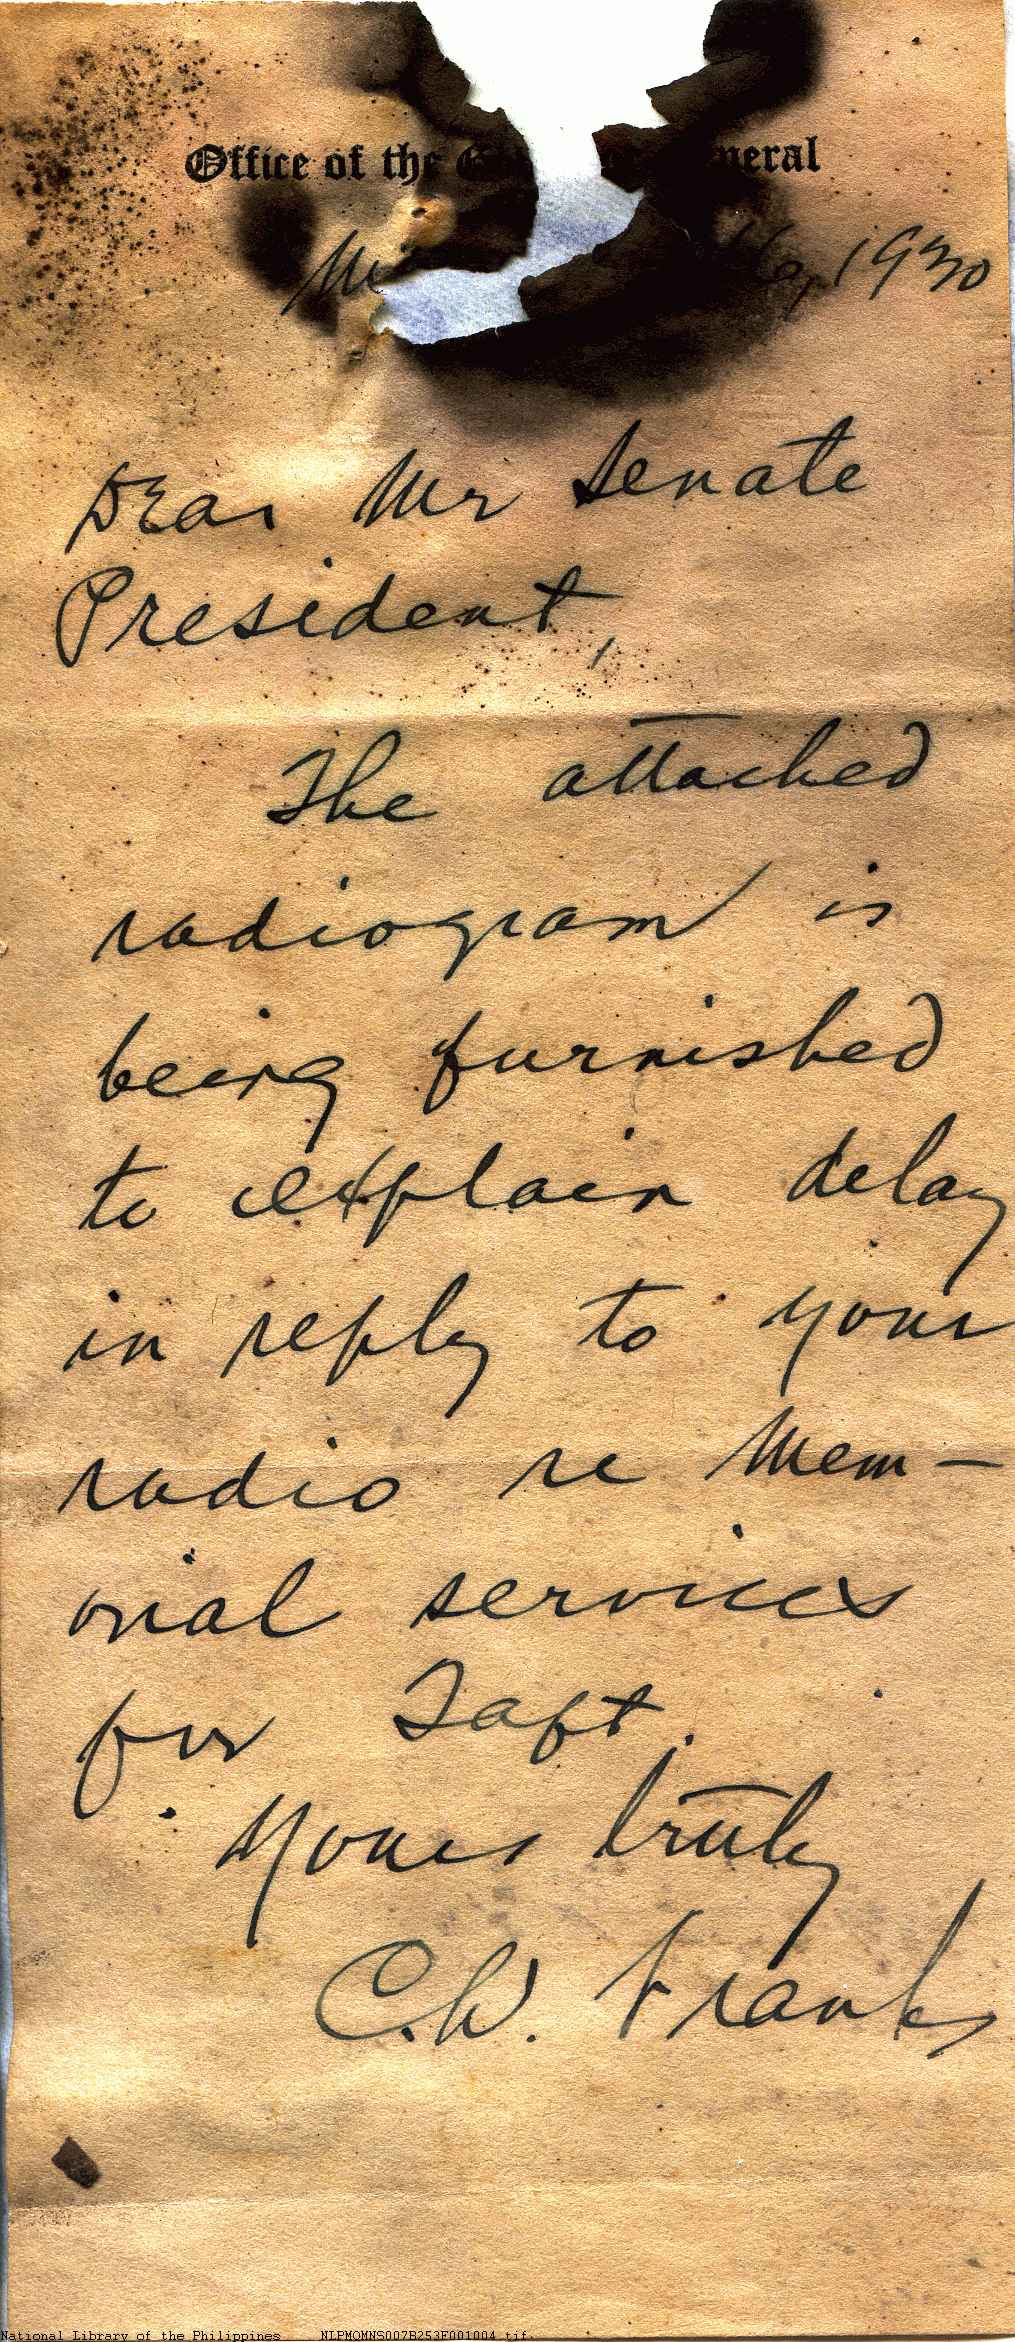 Office of the G neral
16, 1930
Dear Mr Senate
President,
The attached
radiogram is
being furnished
to explain delay
in reply to your
radio re Mem-
orial services
for Taft.
Yours truly
C.W. Franks
National Library of the Philippines NLPMQMNS007B253F001004.tif.